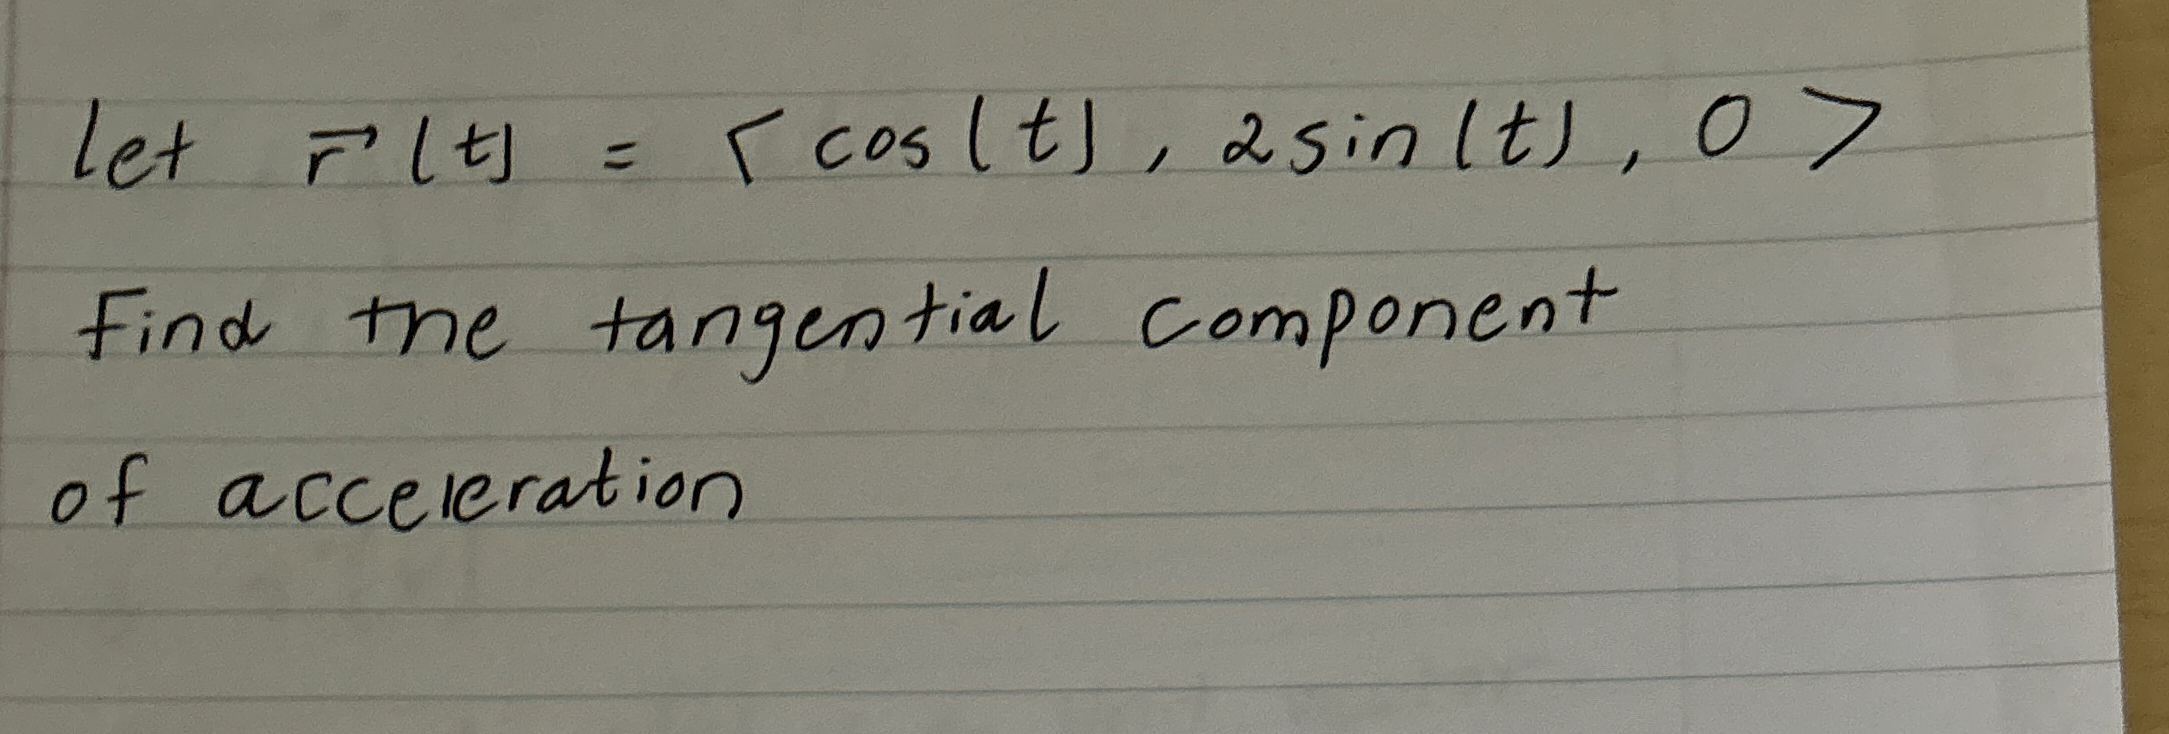 let r⃗(t) = <cos(t), 2sin(t), 0>
Find the tangential component
of acceleration